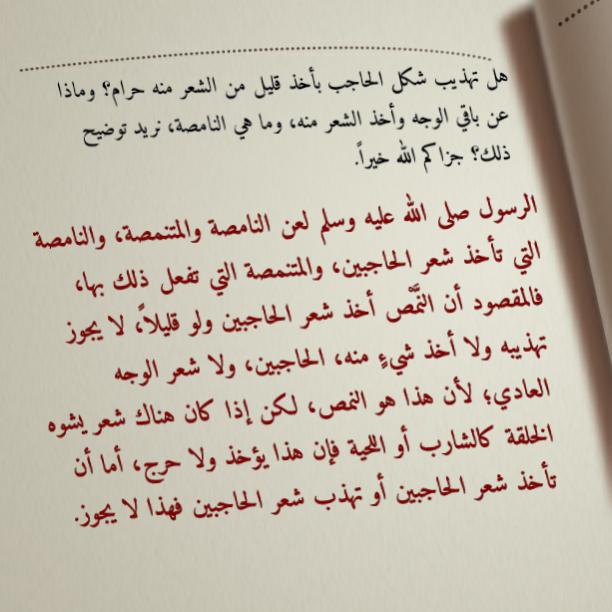 هل تهذيب شكل الحاجب بأخذ قليل من الشعر منه حرام؟ وماذا
عن باقي الوجه وأخذ الشعر منه، وما هي النامصة، نريد توضيح
ذلك؟ جزاكم الله خيراً.
الرسول صلى الله عليه وسلم لعن النامصة والمتنمصة، والنامصة
التي تأخذ شعر الحاجبين، والمتنمصة التي تفعل ذلك بها،
فالمقصود أن النَّمْص أخذ شعر الحاجبين ولو قليلاً، لا يجوز
تهذيبه ولا أخذ شيءٍ منه، الحاجبين، ولا شعر الوجه
العادي؛ لأن هذا هو النمص، لكن إذا كان هناك شعر يشوه
الخلقة كالشارب أو اللحية فإن هذا يؤخذ ولا حرج، أما أن
تأخذ شعر الحاجبين أو تهذب شعر الحاجبين فهذا لا يجوز.